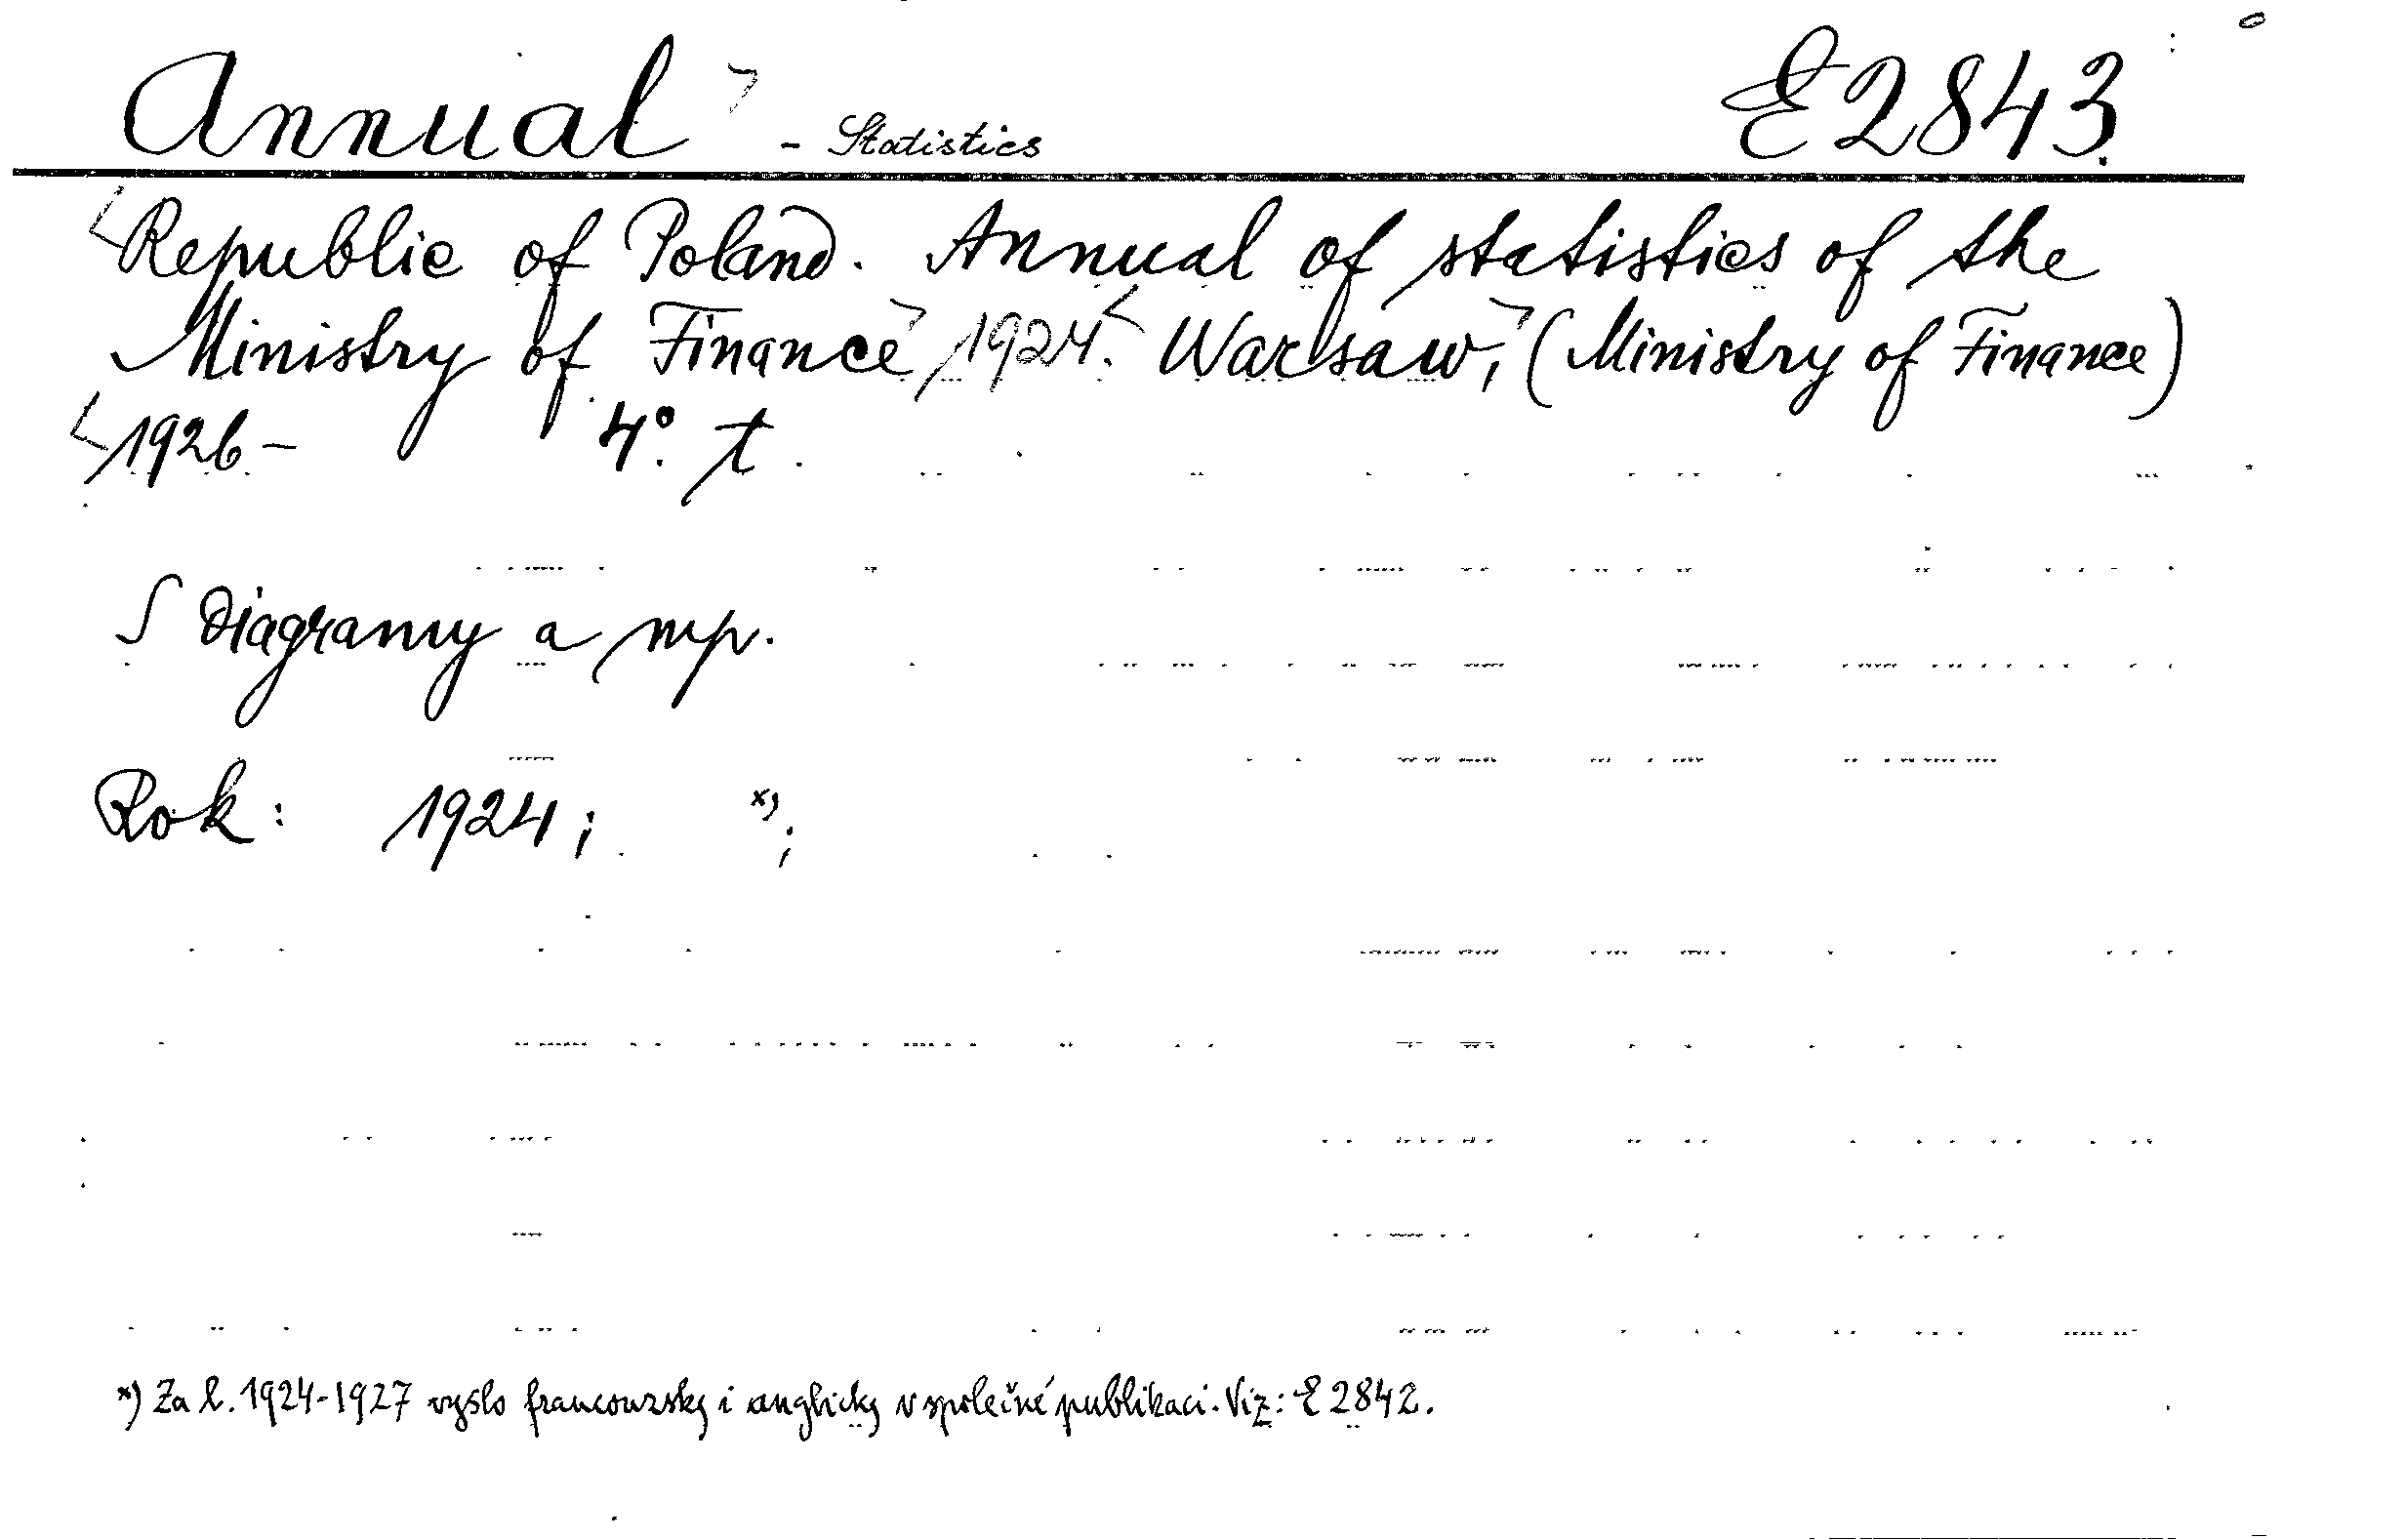 Annual - Statistics E2843.
Republic of Poland. Annual of statistics of the
Ministry of Finance, 1924. Warsaw, (Ministry of Finance)
1926- 4°. t.
S diagramy a mp.
Rok: 1924; *);
*) Za l. 1924-1927 vyšlo francouzsky i anglicky v společné publikaci. Viz: E 2842.